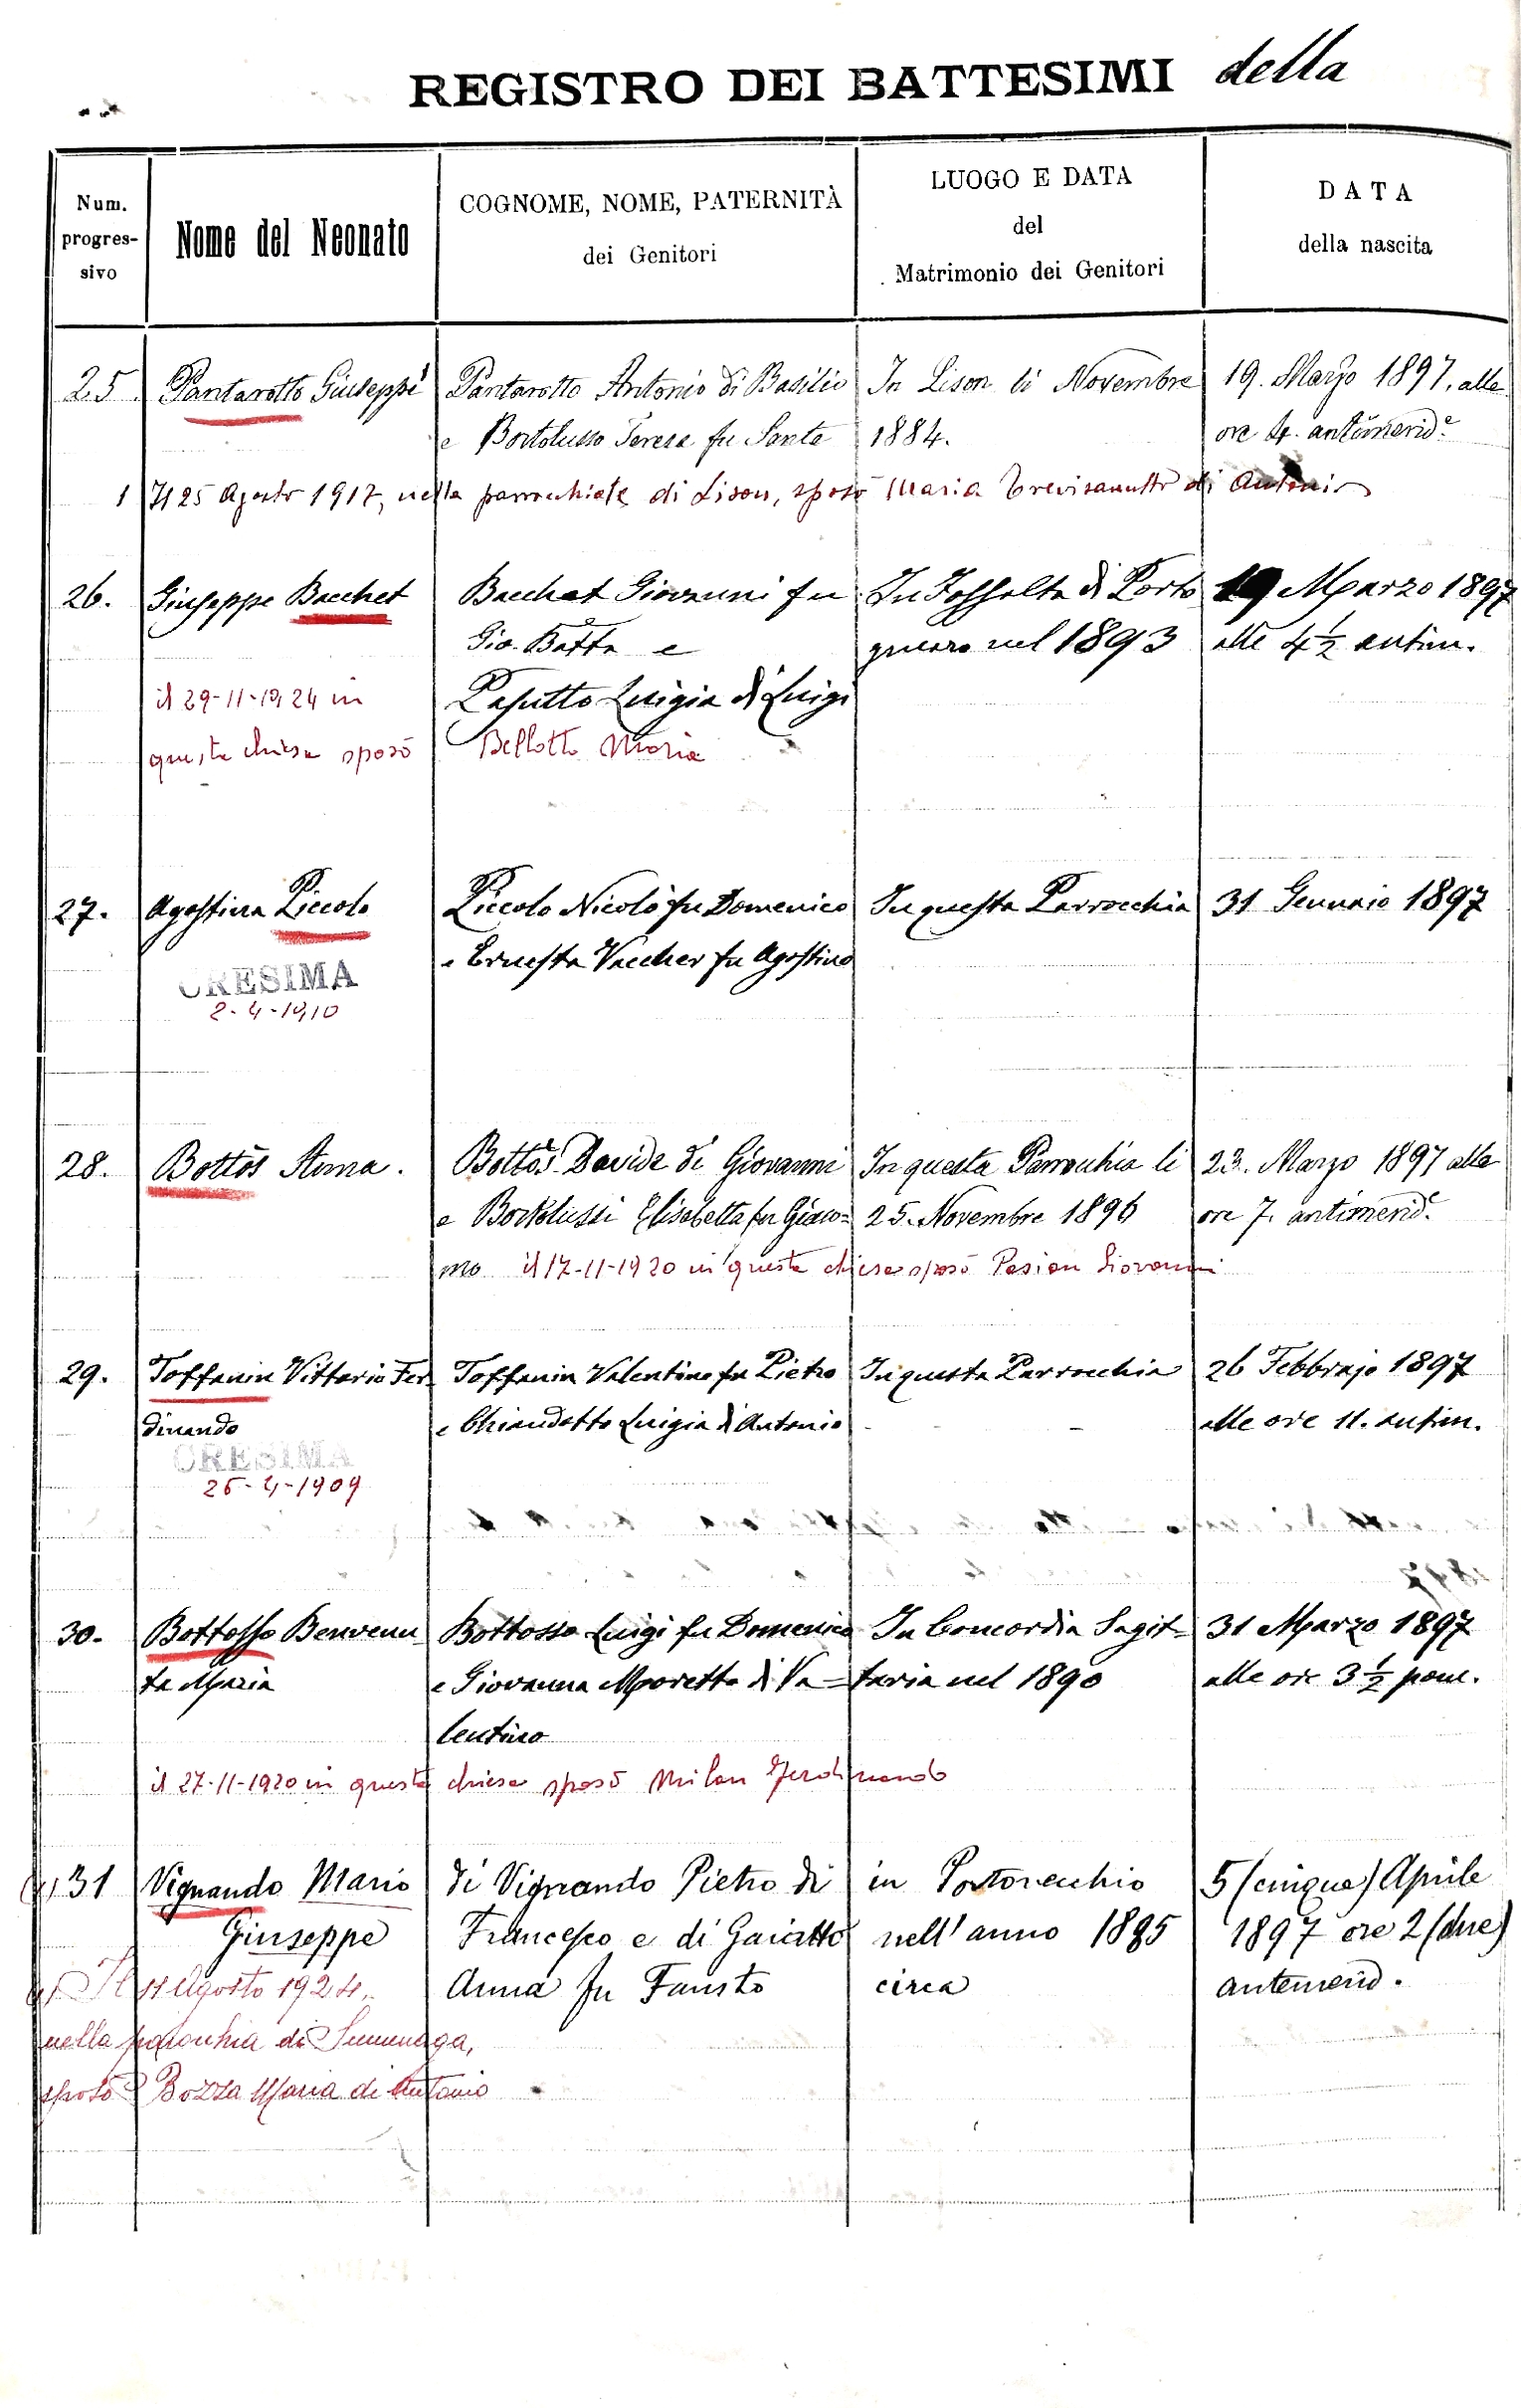 REGISTRO DEI BATTESIMI della
Num. progres- sivo
Nome del Neonato
COGNOME, NOME, PATERNITÀ dei Genitori
LUOGO E DATA del Matrimonio dei Genitori
DATA della nascita
25 Pantarotto Giuseppe Pantarotto Antonio di Basilio In Lison li Novembre 19. Marzo 1897. alle
e Bortolusso Teresa fu Sante 1884. ore 4. antimerid.e
1 Il 25 Agosto 1917, nella parrocchiale di Lison, sposò Maria Trevisanutto di Antonio
26. Giuseppe Bacchet Bacchet Giovanni fu In Fossalta di Porto 19 Marzo 1897
Gio. Batta e gruaro nel 1893 alle 4 1/2 antim.
il 29-11-1924 in Pasutto Luigia di Luigi
questa chiesa sposò Bellotto Maria
27. Agostina Piccolo Piccolo Nicolò fu Domenico In questa Parrocchia 31 Gennaio 1897
e Ernesta Vaccher fu Agostino
CRESIMA
2-4-1910
28. Bottòs Anna. Bottòs Davide di Giovanni In questa Parrochia li 23. Marzo 1897 alle
e Bortolussi Elisabetta fu Giaco= 25. Novembre 1896 ore 7. antimerid.e
mo il 17-11-1920 in questa chiesa sposò Pasian Giovanni
29. Toffanin Vittorio Fer Toffanin Valentino fu Pietro In questa Parrocchia 26 Febbrajo 1897
dinando e Chiandotto Luigia di Antonio alle ore 11. antim.
CRESIMA
25-4-1909
30. Bottosso Benvenu Bottosso Luigi fu Domenico In Concordia Sagit= 31 Marzo 1897
ta Maria e Giovanna Moretto di Va= taria nel 1890 alle ore 3 1/2 pom.
lentino
il 27-11-1920 in questa chiesa sposò Milan Ferdinando
31 Vignando Mario di Vignando Pietro di in Portovecchio 5 (cinque) Aprile
Giuseppe Francesco e di Gaiatto nell'anno 1885 1897 ore 2 (due)
Il 11 Agosto 1924, Anna fu Fausto circa antemerid.
nella parochia di Summaga,
sposò Bozza Maria di Antonio